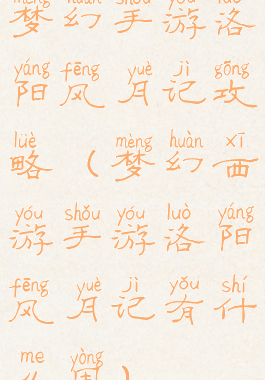 mèng huàn shǒu yóu luò
梦幻手游洛
yáng fēng yuè jì gōng
阳风月记攻
lüè mèng huàn xī
略（梦幻西
yóu shǒu yóu luò yáng
游手游洛阳
fēng yuè jì yǒu shí
风月记有什
me yòng
么用）